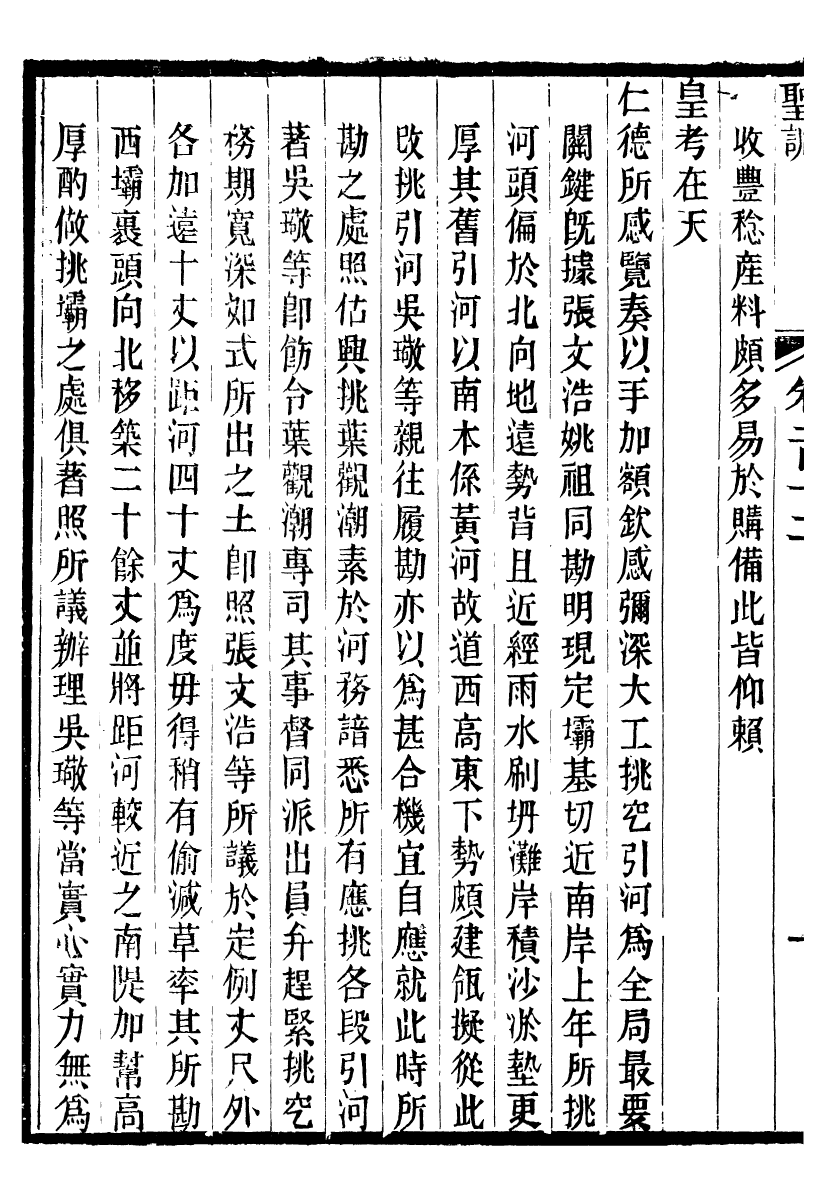 聖訓 卷二百十二 十
收豐稔產料頗多易於購備此皆仰賴
皇考在天
仁德所感覽奏以手加額欽感彌深大工挑空引河爲全局最要
關鍵旣據張文浩姚祖同勘明現定壩基切近南岸上年所挑
河頭偏於北向地遠勢背且近經雨水刷坍灘岸積沙淤墊更
厚其舊引河以南本係黃河故道西高東下勢頗建瓴擬從此
改挑引河吳璥等親往履勘亦以爲甚合機宜自應就此時所
勘之處照估興挑葉觀潮素於河務諳悉所有應挑各段引河
著吳璥等卽飭令葉觀潮專司其事督同派出員弁趕緊挑空
務期寬深如式所出之土卽照張文浩等所議於定例丈尺外
各加遠十丈以距河四十丈爲度毋得稍有偷減草率其所勘
西壩裹頭向北移築二十餘丈並將距河較近之南隄加幫高
厚酌做挑壩之處俱著照所議辦理吳璥等當實心實力無爲